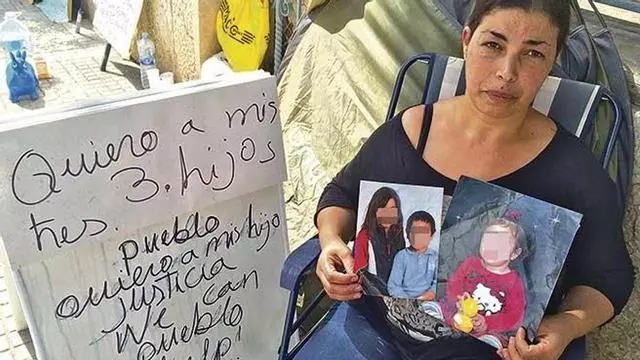 Quiero a mis
3. hijos
tres.
Pueblo
quiero a mis hijo
Justicia
We can
Pueblo